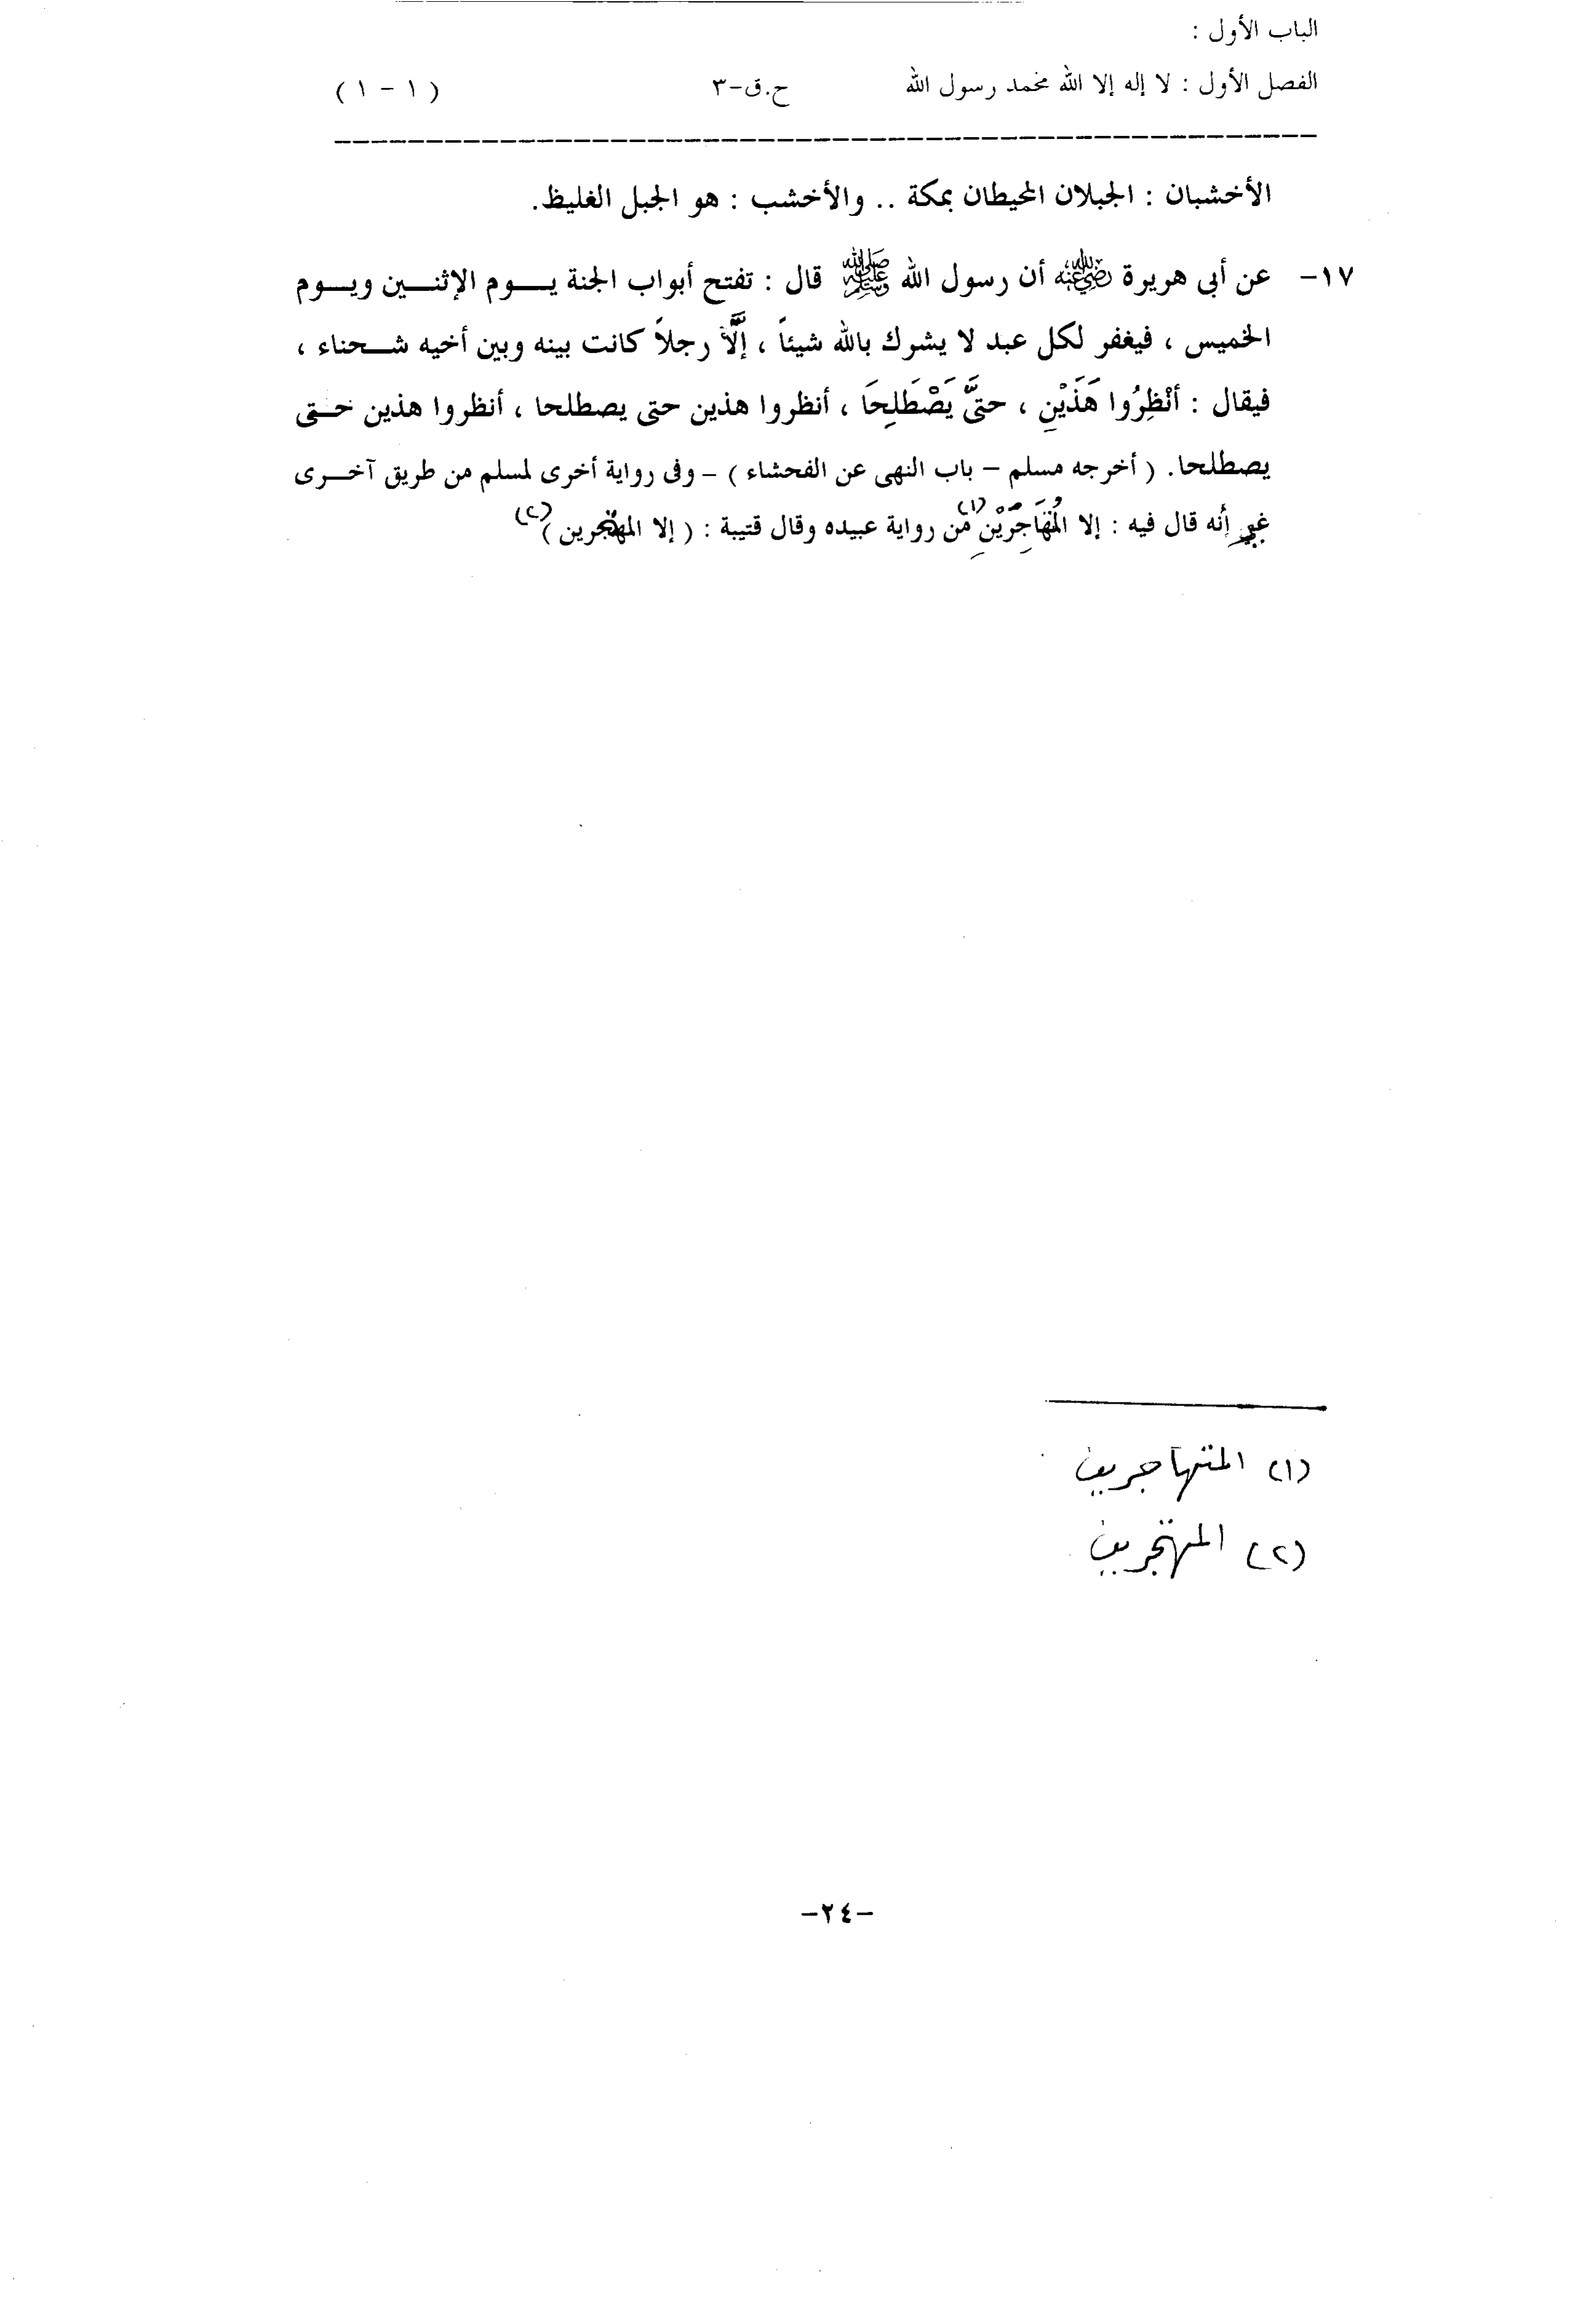 الباب الأول :
الفصل الأول : لا إله إلا الله محمد رسول الله ح.ق-٣ ( ١ - ١ )
الأخشبان : الجبلان المحيطان بمكة .. والأخشب : هو الجبل الغليظ.
١٧- عن أبى هريرة رضي الله عنه أن رسول الله ﷺ قال : تفتح أبواب الجنة يـــوم الإثنـــين ويـــوم
الخميس ، فيغفر لكل عبد لا يشرك بالله شيئاً ، إلَّا رجلاً كانت بينه وبين أخيه شـــحناء ،
فيقال : أنْظِرُوا هَذَيْنِ ، حتىَّ يَصْطَلِحَا ، أنظروا هذين حتى يصطلحا ، أنظروا هذين حـتى
يصطلحا. ( أخرجه مسلم – باب النهى عن الفحشاء ) – وفى رواية أخرى لمسلم من طريق آخـــرى
أنه قال فيه : إلا (١) من رواية عبيده وقال قتيبة : ( إلا المهتجرين ) (٢)
(١) المتهاجرين
(٢) المهتجرين
-٢٤-